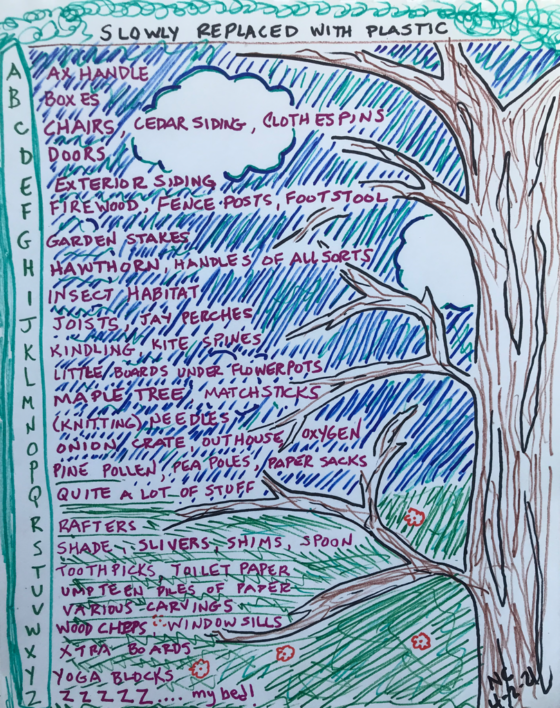 SLOWLY REPLACED WITH PLASTIC
A AX HANDLE
B BOXES
C CHAIRS, CEDAR SIDING, CLOTHESPINS
D DOORS
E EXTERIOR SIDING
F FIREWOOD, FENCE POSTS, FOOTSTOOL
G GARDEN STAKES
H HAWTHORN, HANDLES OF ALL SORTS
I INSECT HABITAT
J JOISTS, JAY PERCHES
K KINDLING, KITE SPINES
L LITTLE BOARDS UNDER FLOWERPOTS
M MAPLE TREE, MATCHSTICKS
N (KNITTING) NEEDLES
O ONION CRATE, OUTHOUSE, OXYGEN
P PINE POLLEN, PEA POLES, PAPER SACKS
Q QUITE A LOT OF STUFF
R RAFTERS
S SHADE, SLIVERS, SHIMS, SPOON
T TOOTHPICKS, TOILET PAPER
U UMPTEEN PILES OF PAPER
V VARIOUS CARVINGS
W WOOD CHIPS WINDOWSILLS
X XTRA BOARDS
Y YOGA BLOCKS
Z ZZZZZ.... my bed!
NC